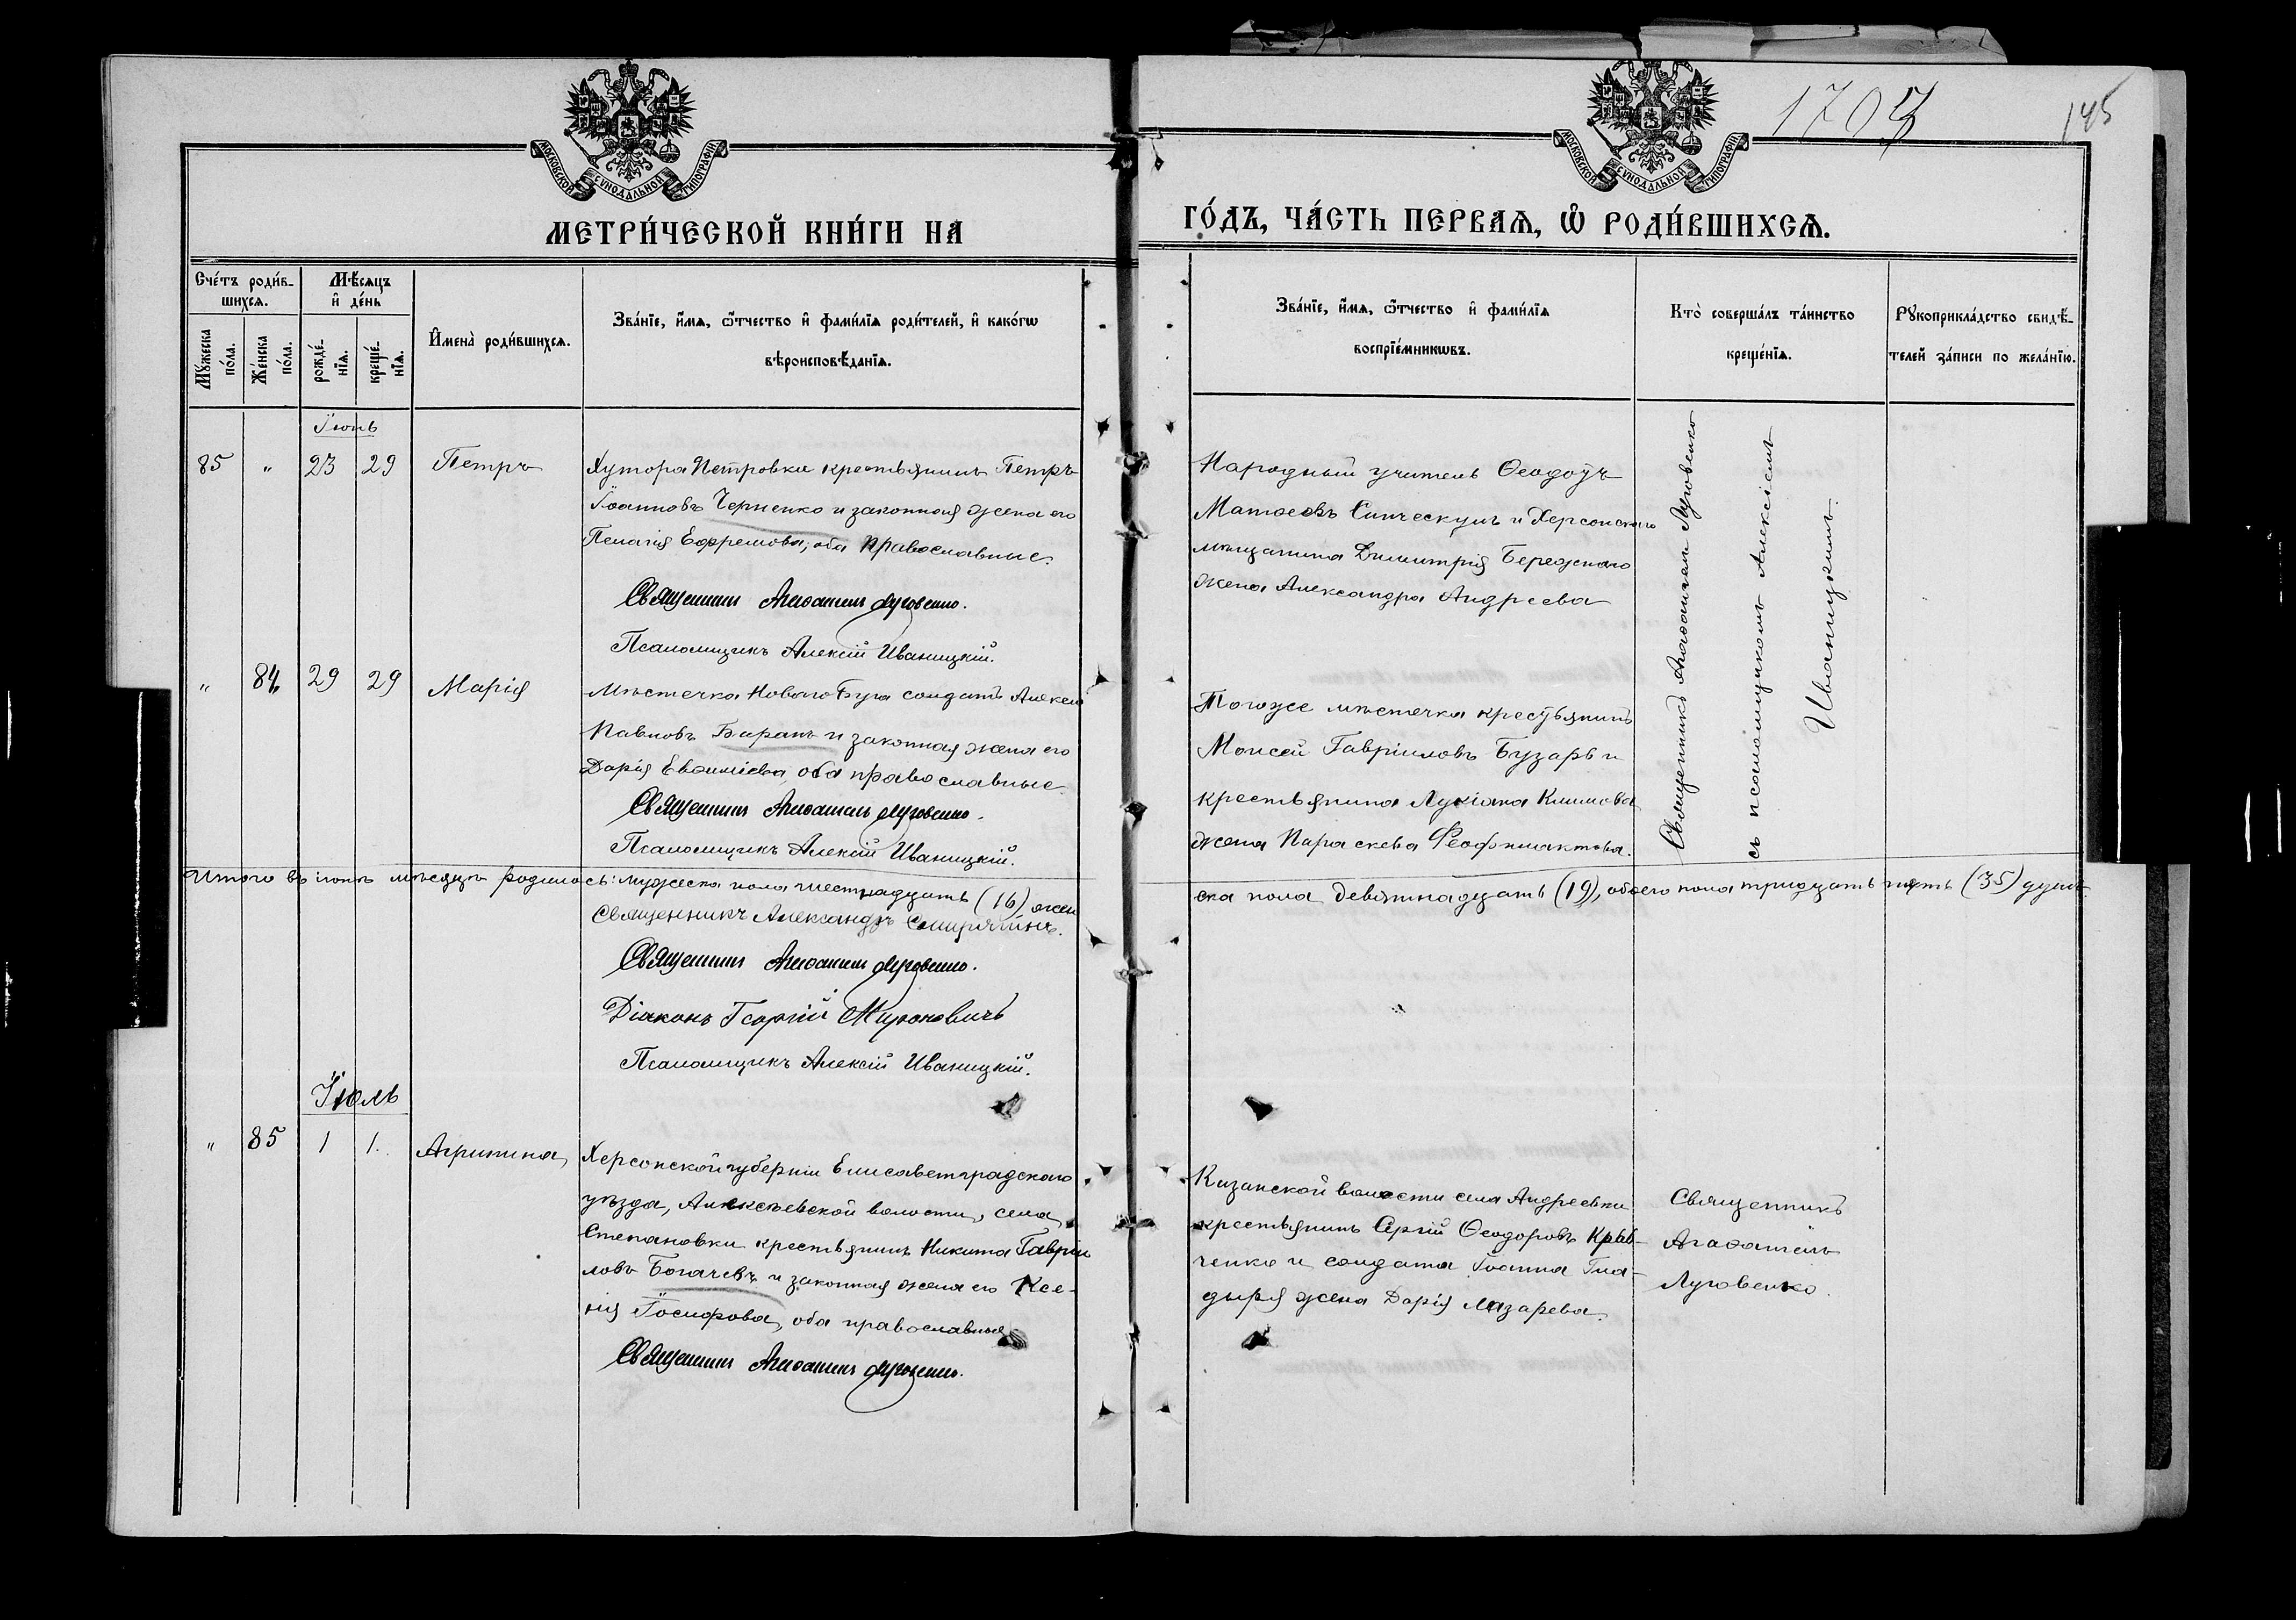 1703
145
МОСКОВСКОЙ СѴНОДАЛЬНОЙ ТИПОГРАФІИ
МОСКОВСКОЙ СѴНОДАЛЬНОЙ ТИПОГРАФІИ
МЕТРИ́ЧЕСКОЙ КНИ́ГИ НА
ГО́ДЪ, ЧА́СТЬ ПЕРВАѦ, Ѽ РОДИ́ВШИХСѦ.
Сче́тъ роди́в-
шихсѧ.
Мѣ́сѧцъ
и҆ де́нь
Мꙋжеска
по́ла.
Же́нска
по́ла.
рожде́-
нїѧ.
креще́-
нїѧ.
И҆мена̀ роди́вшихсѧ.
Зва́нїе, и҆́мѧ, ѻ҆́тчество и҆ фами́лїѧ роди́телей, и҆ како́гѡ
вѣроисповѣ́данїѧ.
Зва́нїе, и҆́мѧ, ѻ҆́тчество и҆ фами́лїѧ
воспрїе́мникѡвъ.
Кто̀ соверша́лъ та́инство
креще́нїѧ.
Рꙋкоприкла́дство свидѣ́-
телей за́писи по жела́нїю.
Іюнь
85 „ 23 29 Петръ
Хутора Петровки крестьянинъ Петръ
Іоанновъ Черненко и законная жена его
Пелагія Ефремова, оба православные.
Священникъ Агаѳангелъ Луговенко.
Псаломщикъ Алексій Иваницкій.
Народный учитель Ѳеодотъ
Матѳеевъ Синческулъ и Херсонскаго
мѣщанина Димитрія Бережного
жена Александра Андреева
Священникъ Агаѳангелъ Луговенко
съ псаломщикомъ Алексіемъ
Иваницкимъ.
„ 84 29 29 Марія
Мѣстечка Новаго Буга солдатъ Алексій
Павловъ Баранъ и законная жена его
Дарія Евѳиміева, оба православные.
Священникъ Агаѳангелъ Луговенко.
Псаломщикъ Алексій Иваницкій.
Тогоже мѣстечка крестьянинъ
Моисей Гавріиловъ Бузарь и
крестьянина Лукіана Климова
жена Параскева Феофилактова.
Итого въ іюнѣ мѣсяцѣ родилось: мужеска пола шестнадцать (16) жен
ска пола девятнадцать (19), обоего пола тридцать пять (35) душъ.
Священникъ Александръ
Священникъ Агаѳангелъ Луговенко.
Діаконъ Георгій Мироновичъ
Псаломщикъ Алексій Иваницкій.
Іюль
„ 85 1 1. Агрипина,
Херсонской губерніи Елисаветградскаго
уѣзда, Алексѣевской волости, села
Степановки крестьянинъ Никита Гавріи
ловъ Богачевъ и законная жена его Ксе-
нія Іосифова, оба православные
Священникъ Агаѳангелъ Луговенко.
Казанской волости села Андреевки
крестьянинъ Сергій Ѳеодоровъ Крав-
ченко и солдата Іоанна Гла-
дыря жена Дарія Лазарева.
Священникъ
Агаѳангелъ
Луговенко.